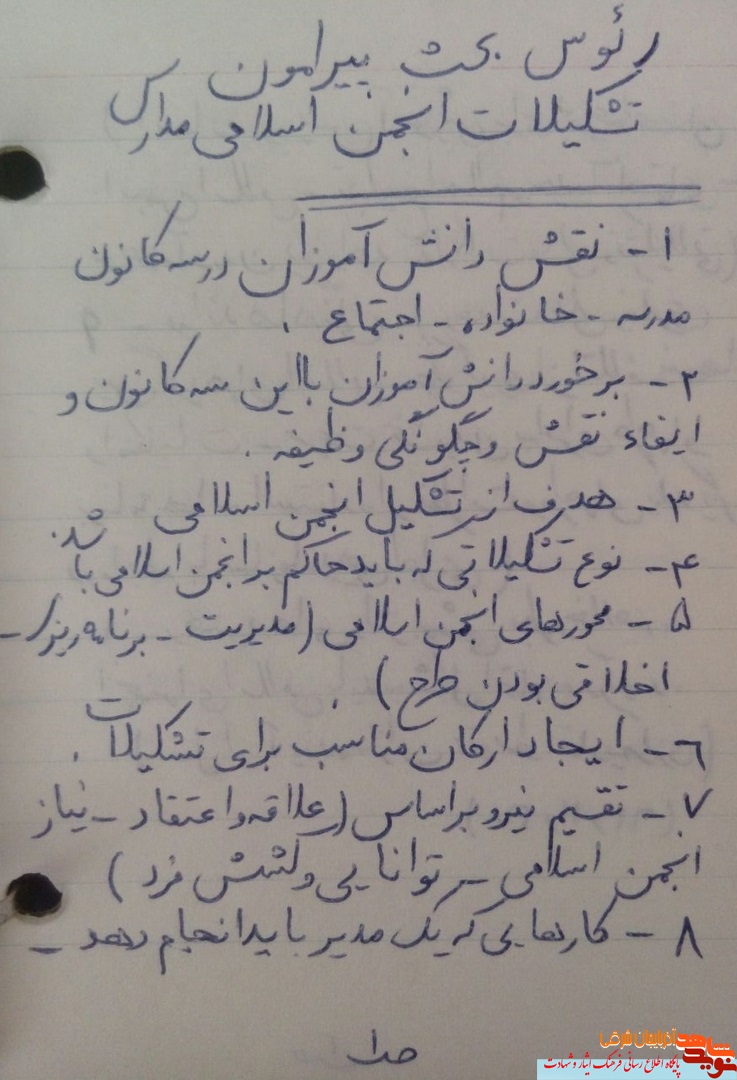 رئوس بحث پیرامون
تشکیلات انجمن اسلامی مدارس
۱- نقش دانش آموزان درسه کانون
مدرسه - خانواده - اجتماع .
۲- برخورد دانش آموزان بااین سه کانون و
ایفاء نقش و چگونگی وظیفه .
۳- هدف از تشکیل انجمن اسلامی
۴- نوع تشکیلاتی که باید حاکم بر انجمن اسلامی باشد.
۵- محورهای انجمن اسلامی (مدیریت - برنامه ریزی -
اخلاقی بودن طرح) .
٦- ایجاد ارکان مناسب برای تشکیلات .
۷- تقسیم نیرو براساس (علاقه و اعتقاد - نیاز
انجمن اسلامی - توانایی و کشش فرد)
۸- کارهایی که یک مدیر باید انجام دهد -
ص۱
نوید شاهد آذربایجان شرقی
پایگاه اطلاع رسانی فرهنگ ایثار و شهادت